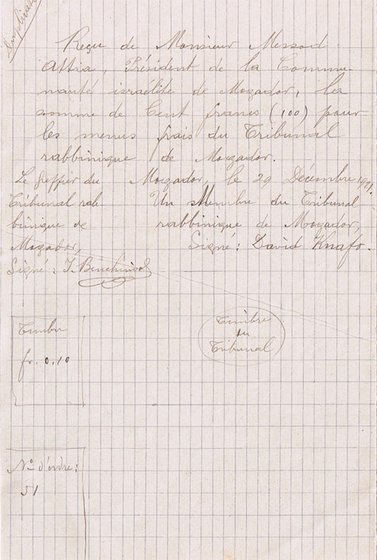 Duplicata
Reçu de Monsieur Messod
Attia, Président de la Commu
nauté israélite de Mogador, la
somme de Cent francs (100) pour
les menus frais du Tribunal
rabbinique de Mogador.
Mogador, le 29 Décembre
Le Greffier du
Tribunal rab
binique de
Mogador,
Signé: J. Benchimol
Un Membre du Tribunal
rabbinique de Mogador,
Signé: David Knafo.
Timbre
fr. 0.10
Timbre
du
Tribunal
No d'ordre:
51